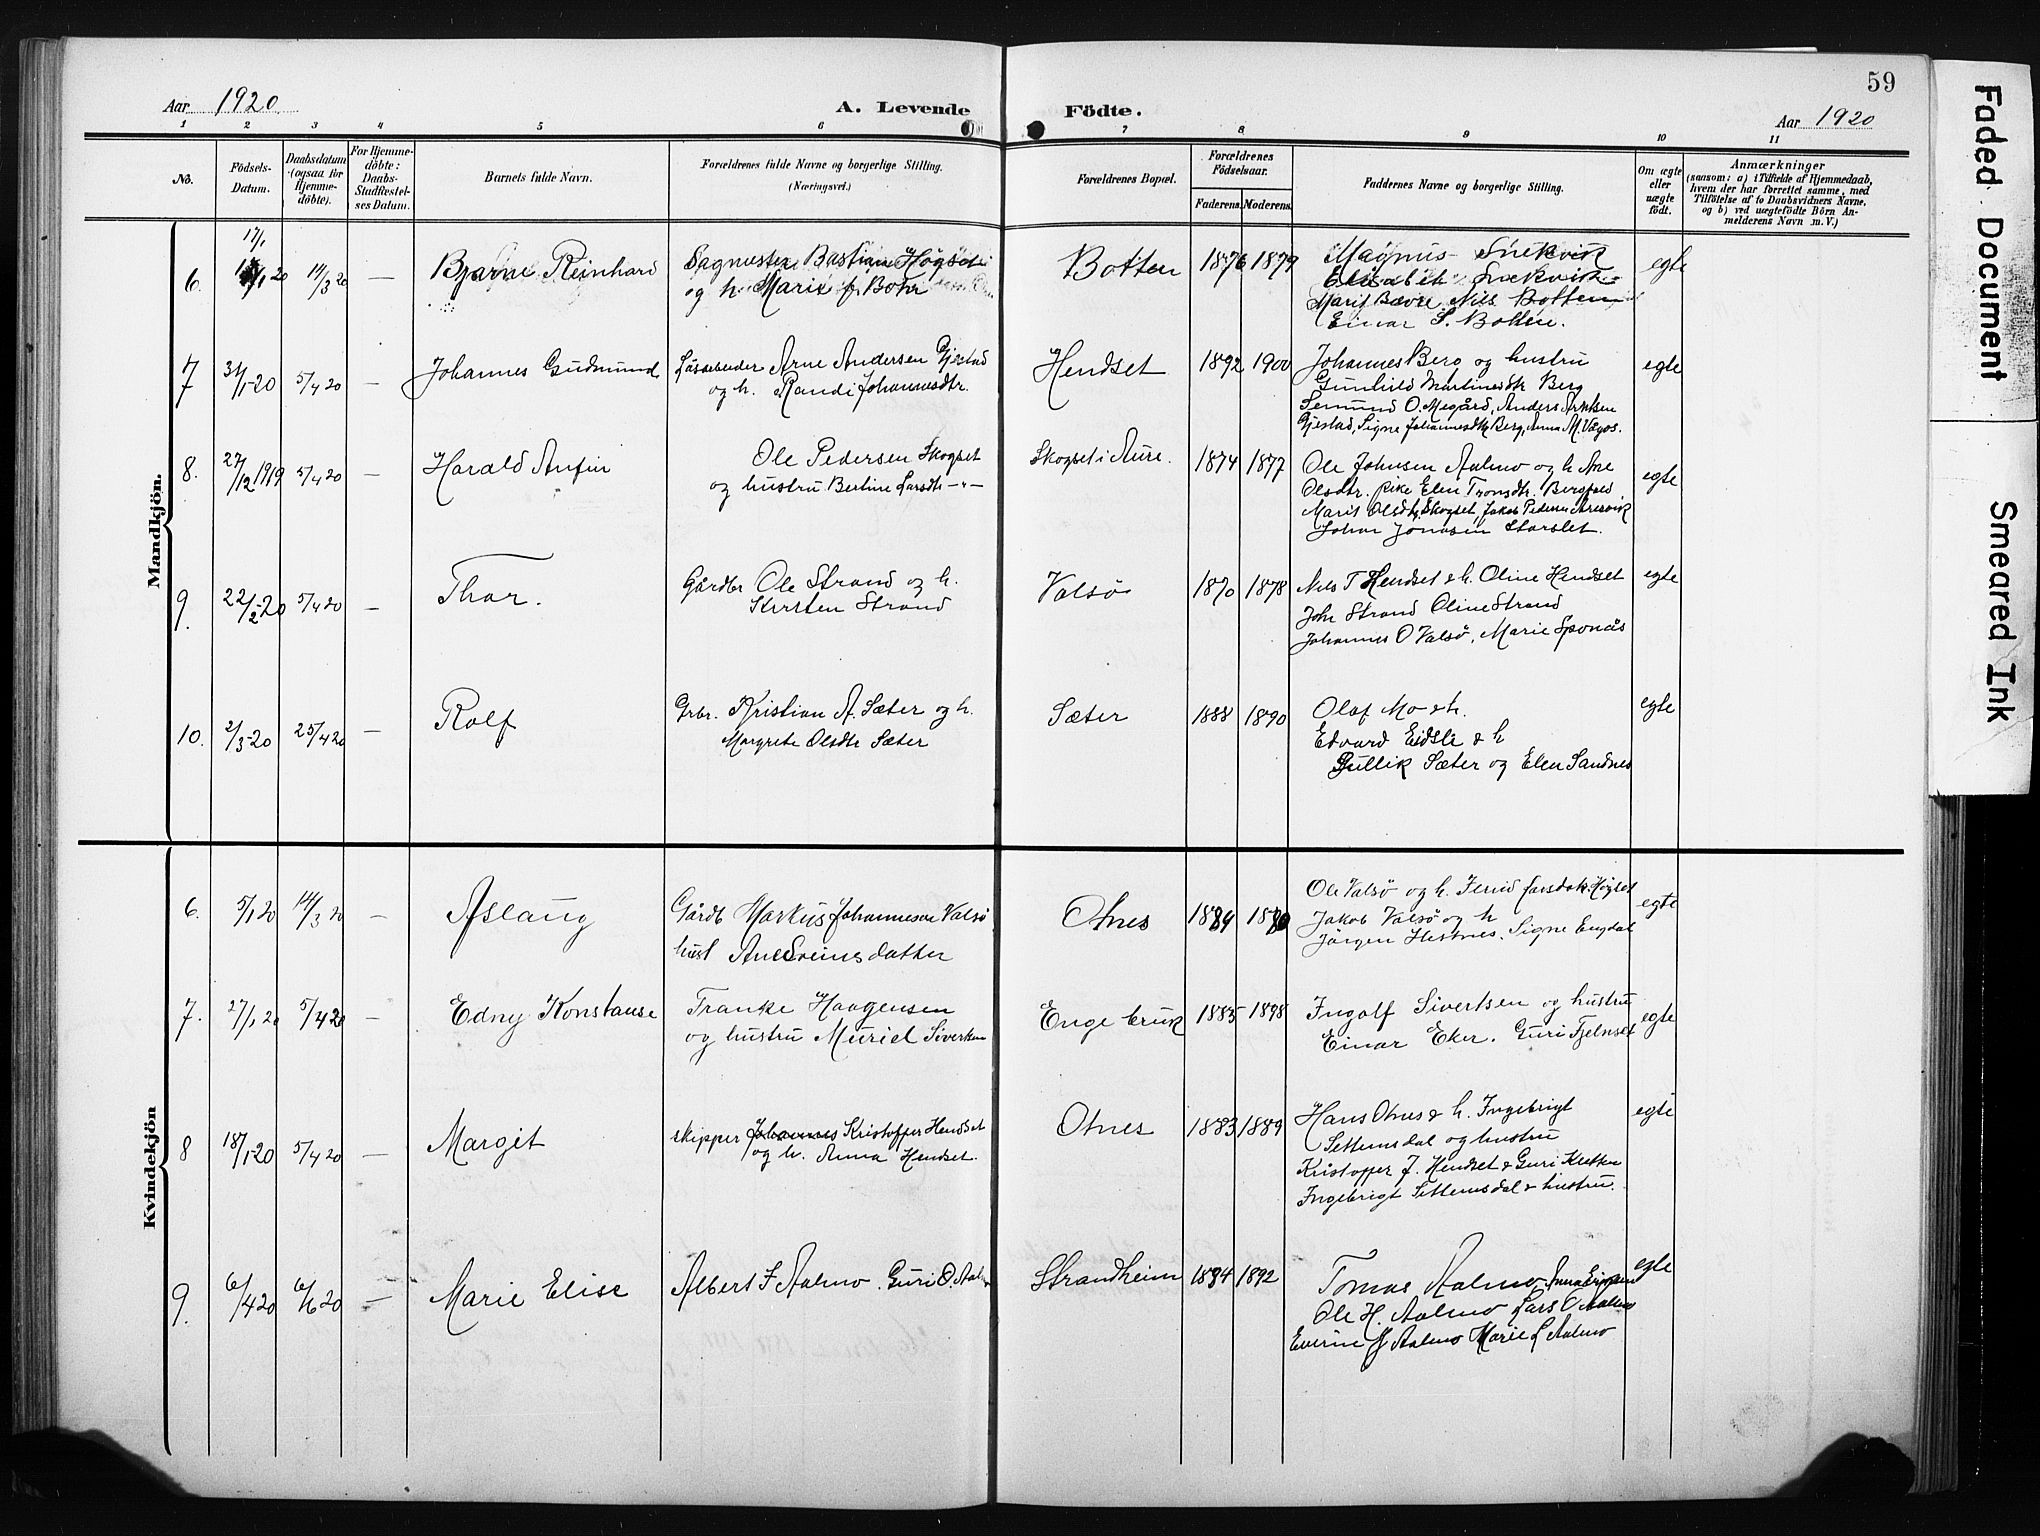 59
Aar 1920 A. Levende Födte. Aar 1920
1 2 3 4 5 6 7 8 9 10 11
No. Födsels-Datum. Daabsdatum (ogsaa för Hjemmedöbte). For Hjemmedöbte: Daabs-Stadfæstelses Datum. Barnets fulde Navn. Forældrenes fulde Navne og borgerlige Stilling. (Næringsvei.) Forældrenes Bopæl. Forældrenes Födselsaar. Faderens. Moderens. Faddernes Navne og borgerlige Stilling. Om ægte eller uægte födt. Anmærkninger
(saasom: a) i Tilfælde af Hjemmedaab,
hvem der har forrettet samme, med
Tilföielse af to Daabsvidners Navne,
og b) ved uægtefödte Börn Anmelderens Navn m. V.)
Mandkjön.
17/1
6. 20 14/3 20 — Bjarne Reinhard
og h. Marie f. Bohr
Botten 1876 1879
Magnus Snekvik
Elisabeth Snekvik
Marit Bævre Nils Botten
Einar S. Botten.
egte
7 31/1-20 5/4 20 — Johannes Gudmund
Arne Andersen Gjestad
og h. Randi Johannesdtr.
Hendset 1892 1900
Johannes Berg og hustru
Gunhild Martinesdtr Berg
O. Megård, Anders
Gjestad, Signe Johannesdtr Berg, Anna M. Vågos.
egte
8. 27/12 1919 5/4 20 — Harald Anfin
Ole Pedersen Skogset
og hustru Bertine Larsdtr —"—
Skogset i Aure. 1874 1877
Ole Johnsen Aalmo og h. Ane
Olsdtr. pike Elen Tronsdtr. Bergfald
Marit Olsdtr. Skogset, Jakob Pedersen Arnevik
Johan Jonasen Storslet.
egte
9. 22/2-20 5/4 20 — Thor.
Gårdbr Ole Strand og h.
Kirsten Strand
Valsø 1870 1878
Nils T Hendset & h. Oline Hendset
Joh Strand Oline Strand
Johannes O Valsø, Marie Sponås
egte
10. 2/3-20 25/4 20 — Rolf
Grbr. Kristian A. Sæter og h.
Margrete Olsdtr Sæter
Sæter 1888 1890
Olaf Mo & h.
Edvard Eidsli & h
Gullik Sæter og Elen Sandnes
egte
Kvindekjön
6. 5/1 20 14/3 20 — Aslaug
Gårdb Markus Johannesen Valsø
hust Ane Sveinsdatter
Otnes 1884 1880
Ole Valsø og h. Høgset
Jakob Valsø og h
Jörgen Hestnes. Signe Engdal
egte
7. 27/1 20 5/4 20 — Edny Konstanse
Franke Haagensen
og hustru Muriel Sivertsen
Engebruk 1885 1898
Ingolf Sivertsen og hustru
Einar Eker. Guri Fjelnset
egte
8 18/1-20 5/4 20 — Margit
skipper Johannes Kristoffer Hendset
og h. Anna Hendset.
Otnes 1883 1889
Hans Otnes & h. Ingebrigt
Settemsdal og hustru
Kristoffer J. Hendset & Guri Kletten
Ingebrigt Settemsdal & hustru.
egte
9. 6/4 20 6/6 20 — Marie Elise
Albert F Aalmo. Guri O. Aalmo
Strandheim 1884 1892
Tomas Aalmo
Ole H. Aalmo Lars O Aalmo
Everine J Aalmo Marie L Aalmo
egte
Faded Document
Smeared Ink